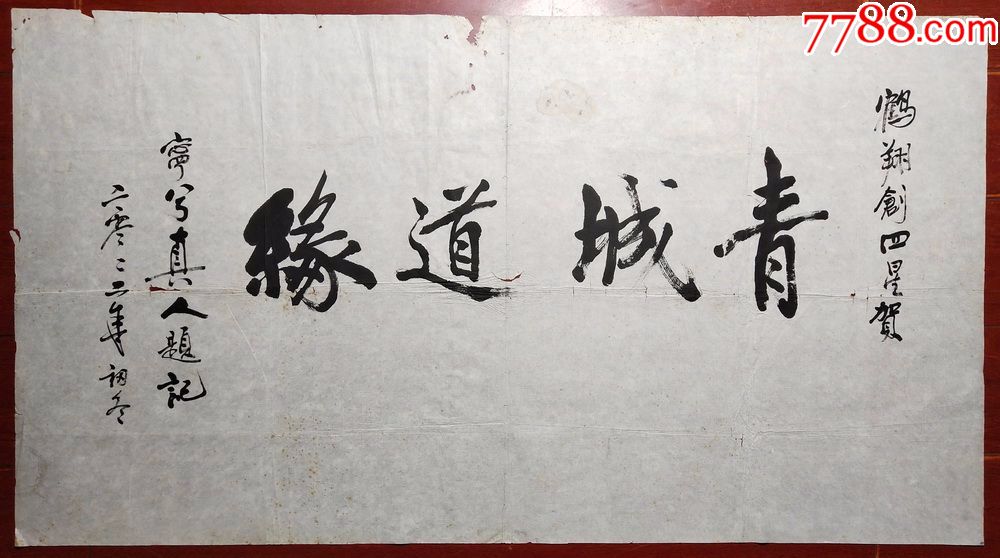 7788.com
鶴翔創四星賀
青城道緣
真人題記
二零二二年初冬